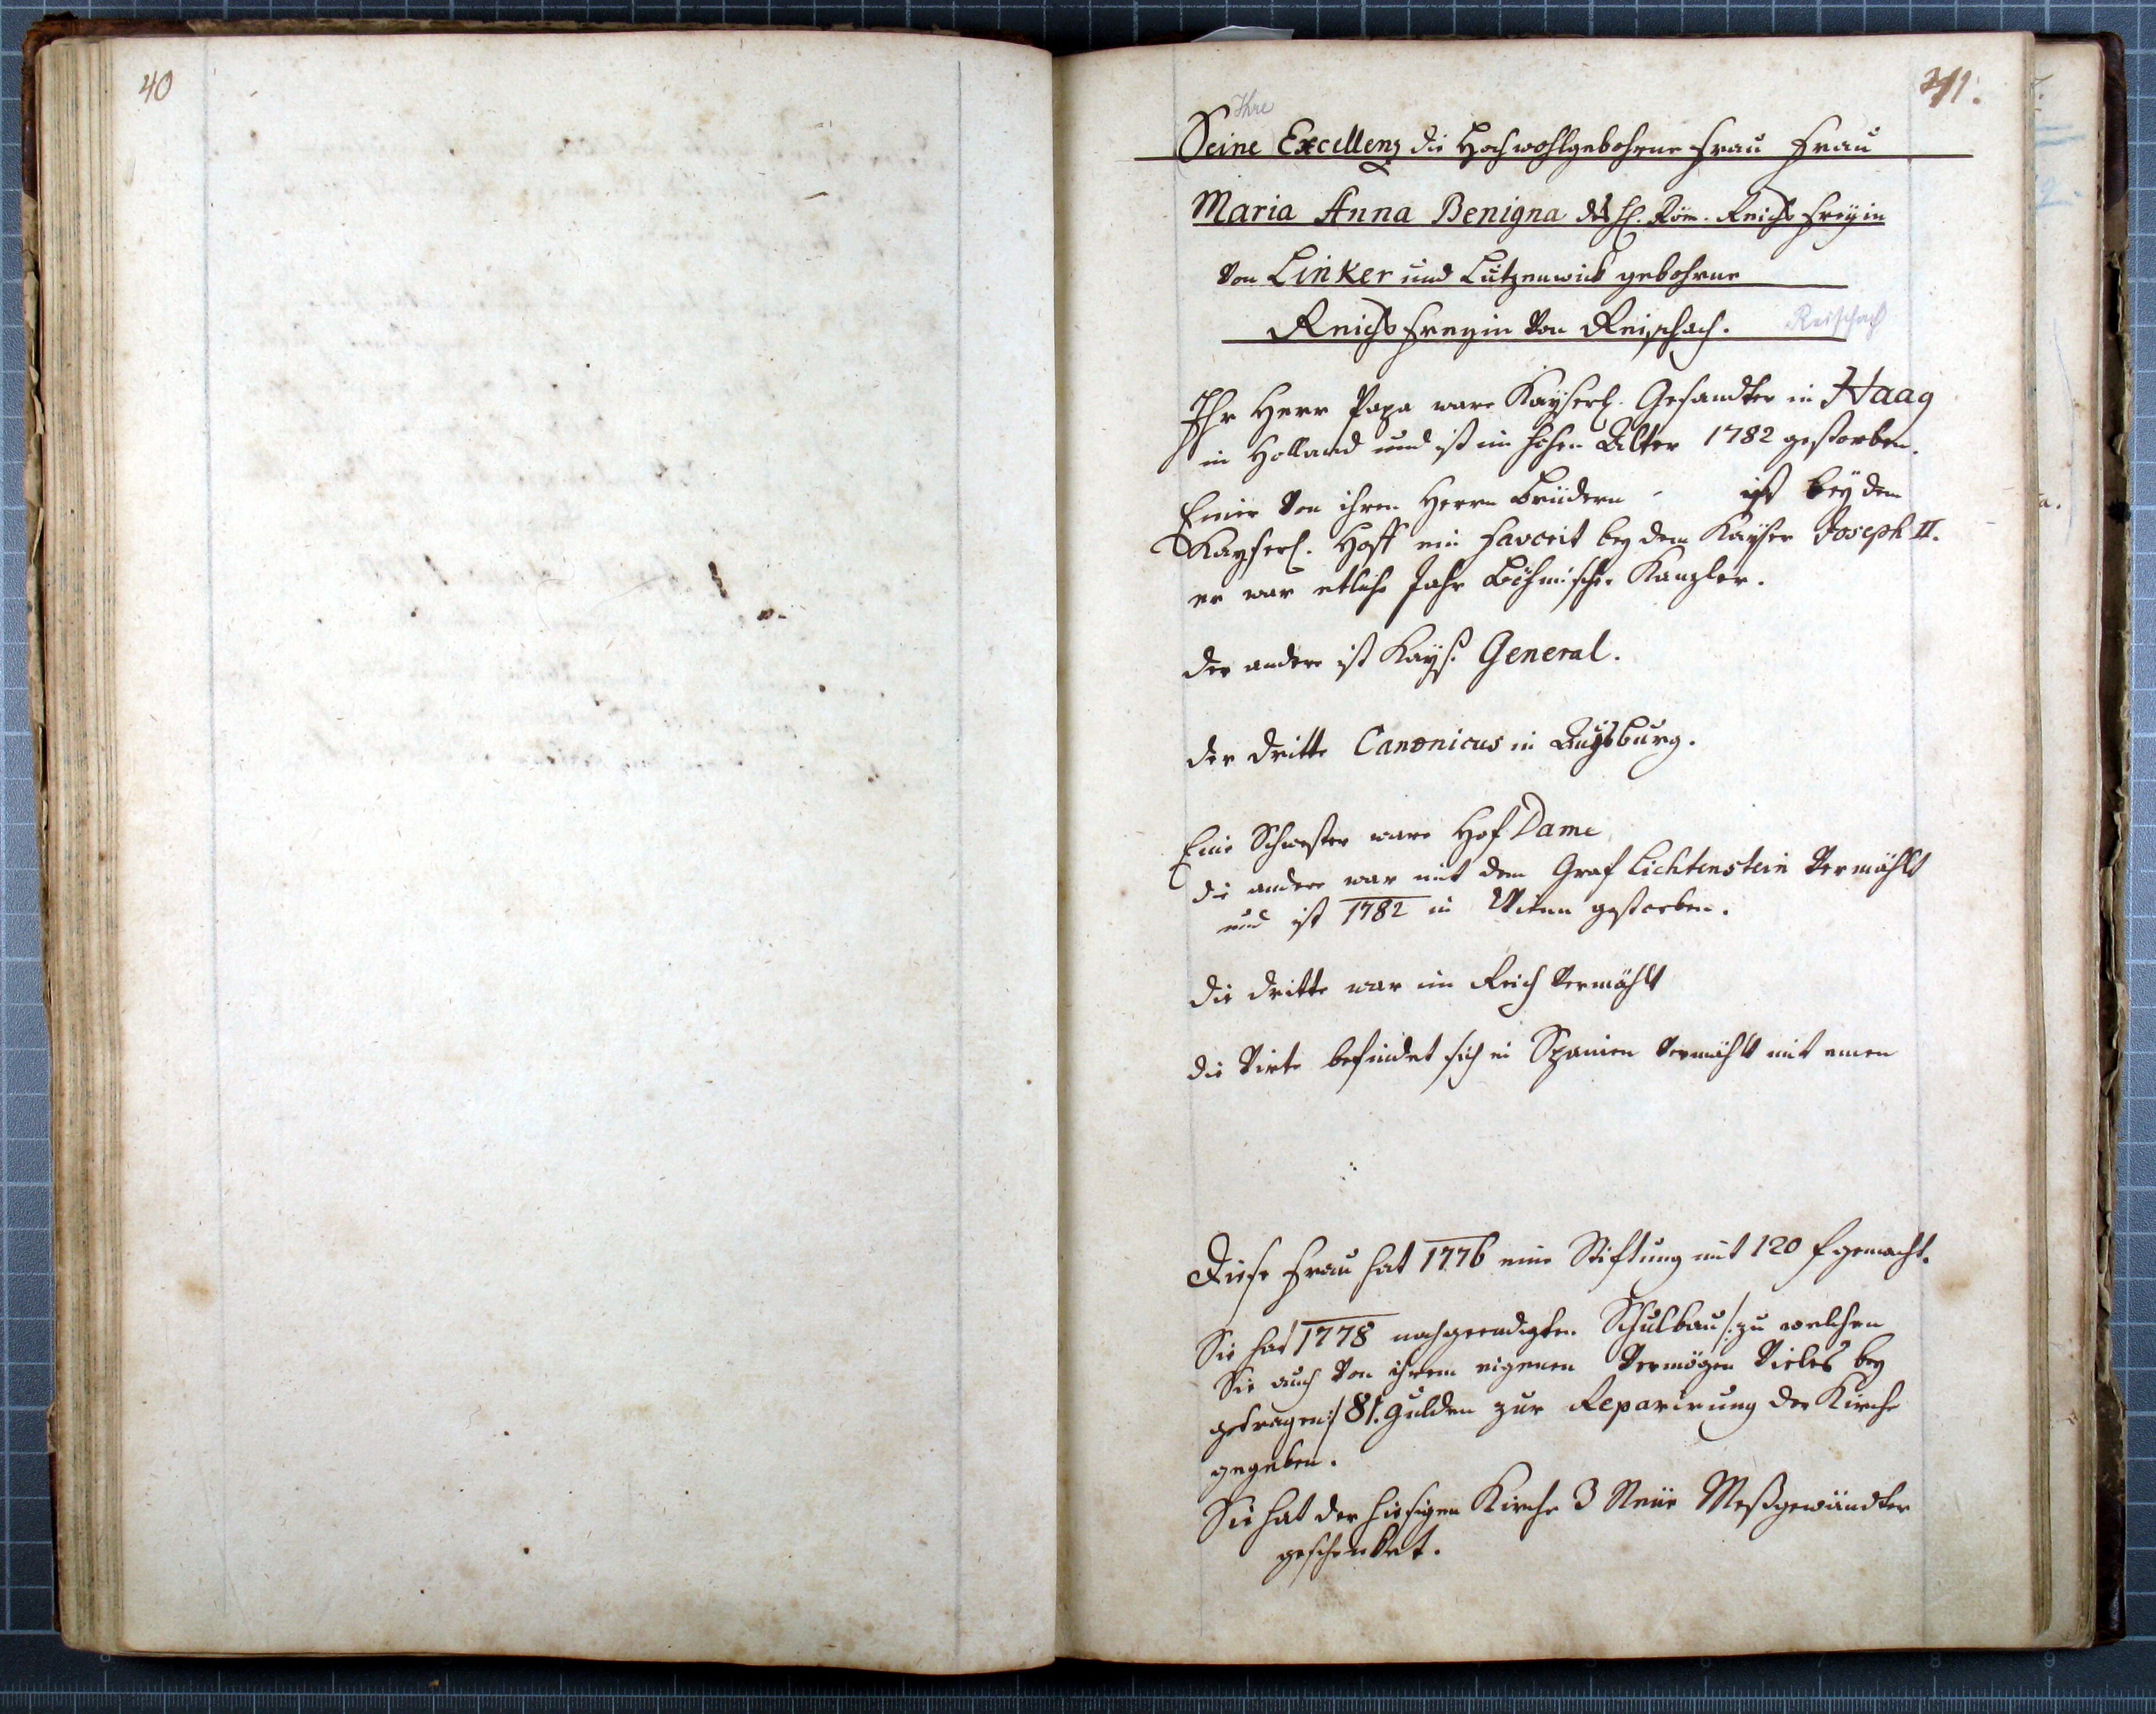 40
41.
Ihre
Seine Excellenz die Hochwohlgebohrne Frau Frau
Maria Anna Benigna des H. Röm. Reichs Freÿin
von Linker und Lützenwick gebohrne
Reichs Freyin von Reischach. Reischach
Ihr Herr Papa ware Kaÿserl. Gesandter in Haag
in Holland und ist im hohen Alter 1782 gestorben.
Einer von ihren Herrn Brüdern - ist beÿ dem
Kayserl. Hoff ein Favorit beÿ dem Kaÿser Joseph II.
er war etliche Jahr Böhmischer Kanzler.
der andere ist Kays. General.
der dritte Canonicus in Augsburg.
Eine Schwester ware Hof Dame
die andere war mit dem Graf Lichtenstein vermählt
und ist 1782 in Wienn gestorben.
die dritte war im Reich vermählt
die virte befindet sich in Spanien vermählt mit einen
Diese Frau hat 1776 eine Stiftung mit 120 f gemacht.
Sie hat 1778 nach geendigten Schulbau /: zu welchen
Sie auch von ihrem eigenen Vermögen vieles bey
getragen :/ 81. Gulden zur Reparirung der Kirche
gegeben.
Sie hat der hiesigen Kirche 3 Neüe Meßgewändter
geschenket.